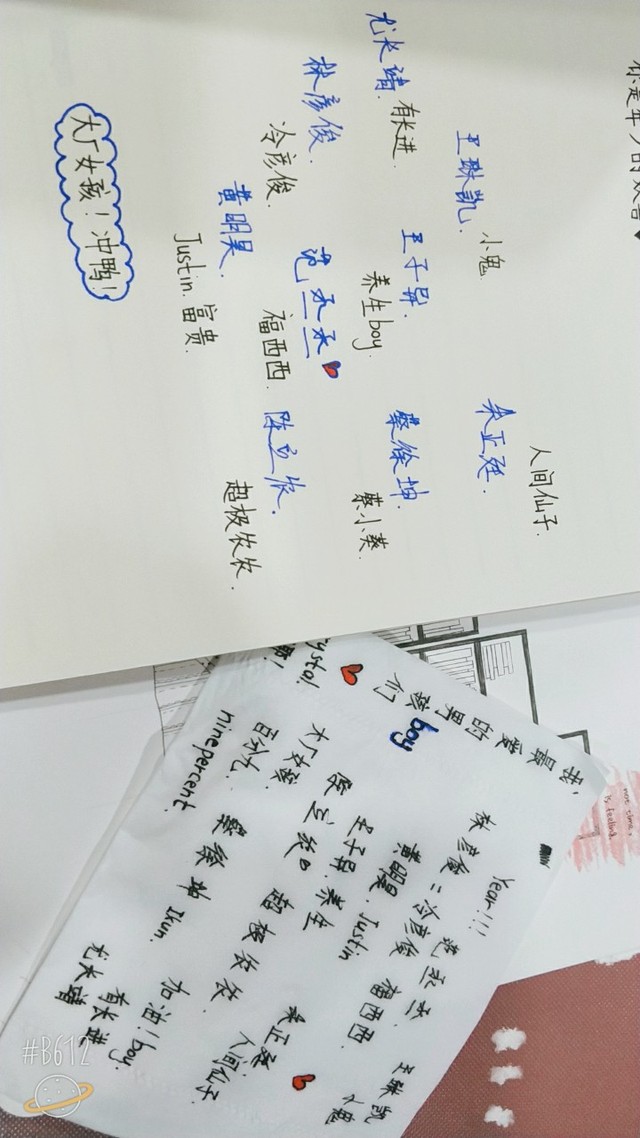 你是年少的欢喜
尤长靖.
有长进.
王琳凯.
小鬼.
朱正廷.
人间仙子.
林彦俊.
冷彦俊.
王子异.
养生boy.
蔡徐坤.
蔡小葵.
黄明昊.
Justin. 富贵.
范丞丞
福西西.
陈立农.
超级农农.
大厂女孩！冲鸭！
我最爱的男孩们
boy
Year!!!
林彦俊：冷彦俊
范丞丞. 福西西.
王琳凯 小鬼
黄明昊. Justin
王子异. 养生
陈立农 超级农农.
朱正廷. 人间仙子
大厂女孩.
百分九.
ninepercent.
蔡徐坤 Ikun.
加油！boy.
尤长靖 有长进
#B612